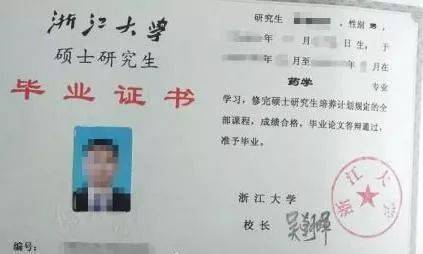 浙江大学
硕士研究生
毕业证书
编号:
研究生 ,性别 男,
年 月 日生,于
年 月至 年 月在
药学 专业
学习,修完硕士研究生培养计划规定的
全部课程,成绩合格,毕业论文答辩通过,
准予毕业。
浙江大学
校长
浙江大学